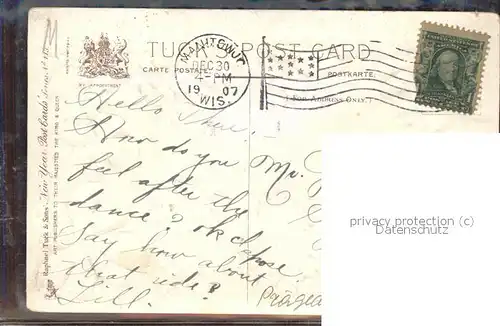 TUCK'S POST CARD
CARTE POSTALE
POSTKARTE
(FOR ADDRESS ONLY.)
BY APPOINTMENT
MANITOWOC
DEC 30
4-PM
1907
WIS.
Raphael Tuck & Sons' "New Year" Post Cards
ART PUBLISHERS TO THEIR MAJESTIES THE KING & QUEEN
Hello There.
How do you
feel after the
dance? ok I hope.
Say how about
that ride?
Lill.
Mr.
privacy protection (c)
Datenschutz